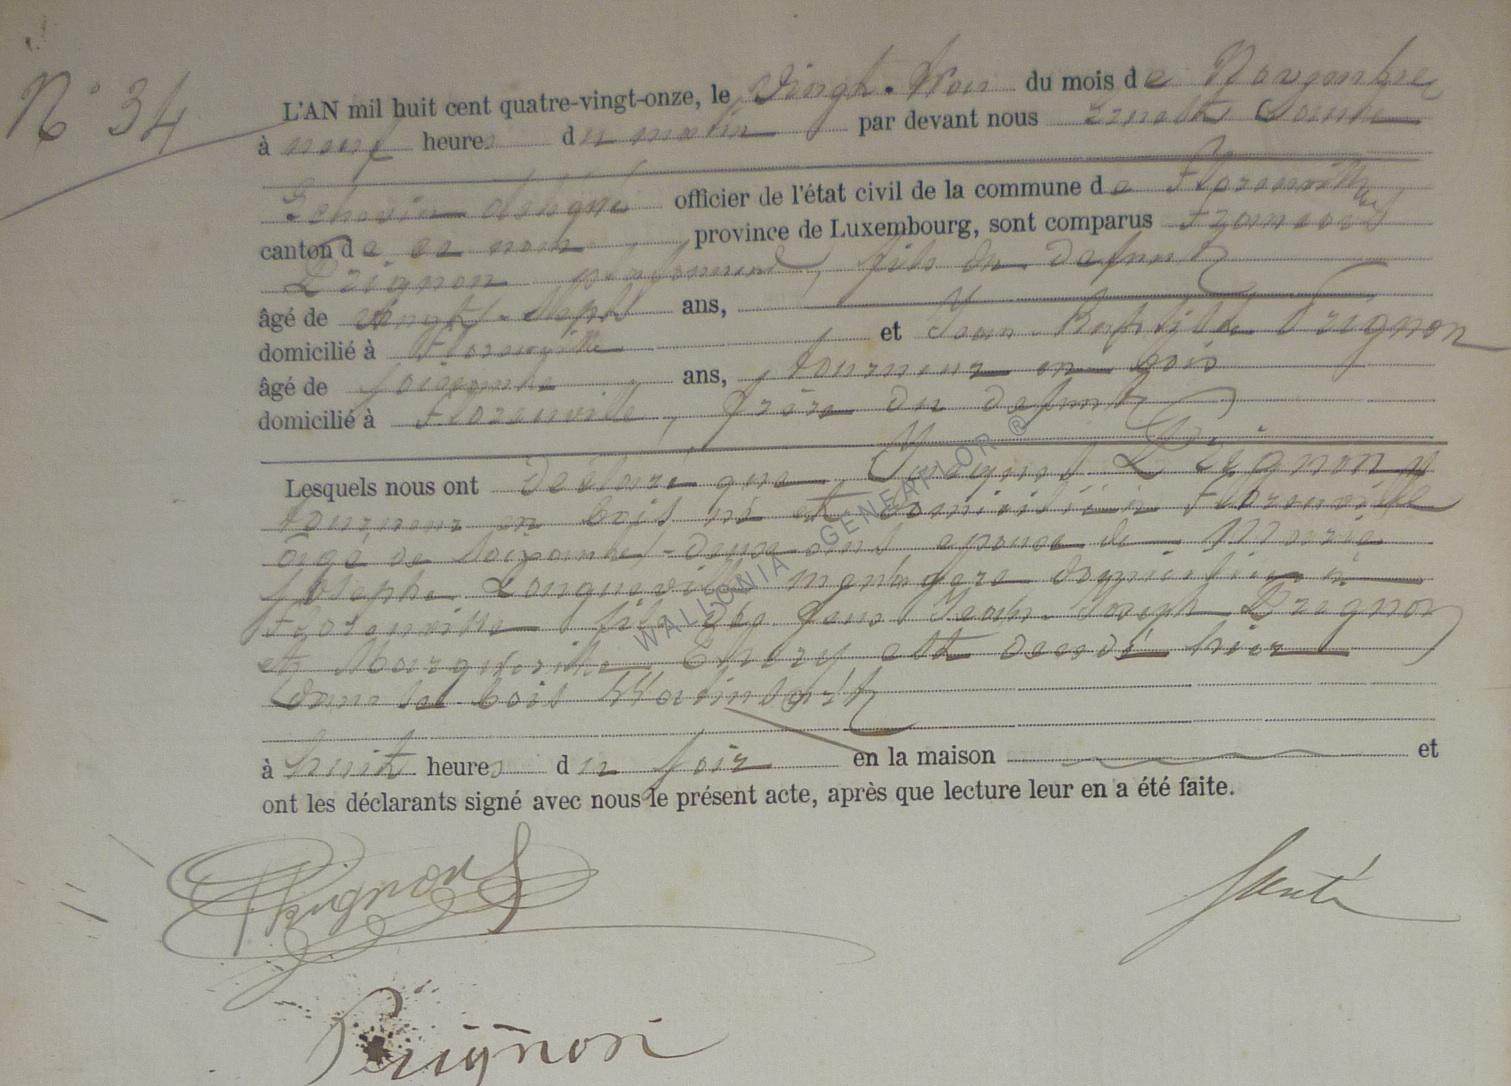 N° 34
L'AN mil huit cent quatre-vingt-onze, le Vingt-trois du mois de Novembre
à neuf heures du matin par devant nous Ernest Santé
Echevin délégué officier de l'état civil de la commune de Florenville
canton de ce nom, province de Luxembourg, sont comparus François
Prignon, fils du défunt
âgé de vingt-sept ans,
domicilié à Florenville et Jean-Baptiste Prignon
âgé de soixante ans, tourneur en bois
domicilié à Florenville, frère du défunt
Lesquels nous ont déclaré que Prignon
tourneur en bois né et domicilié à Florenville
âgé de soixante-deux ans époux de Marie
Josephe Longueville ménagère domiciliée à
Florenville fils des feus Jean-Joseph Prignon
et Marguerite Thiry est décédé hier
dans le bois
à huit heures du soir en la maison et
ont les déclarants signé avec nous le présent acte, après que lecture leur en a été faite.
WALLONIA GENEAFLOR ®
Prignon
Santé
Prignon